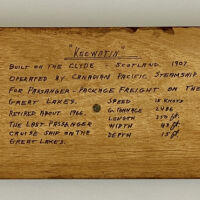 "KEEWATIN"
BUILT ON THE CLYDE - SCOTLAND 1907
OPERATED BY CANADIAN PACIFIC STEAMSHIP
FOR PASSENGER - PACKAGE FREIGHT ON THE
GREAT LAKES. SPEED 15 KNOTS
RETIRED ABOUT 1966. G. TONNAGE 2486
THE LAST PASSENGER LENGTH 350 ft.
CRUISE SHIP ON THE WIDTH 43 ft.
GREAT LAKES. DEPTH 15 ft.